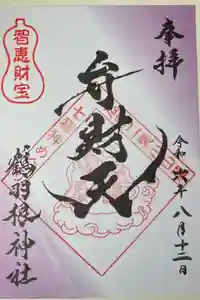 奉拝
令和六年八月十三日
弁財天
智恵財宝
鶴羽根神社